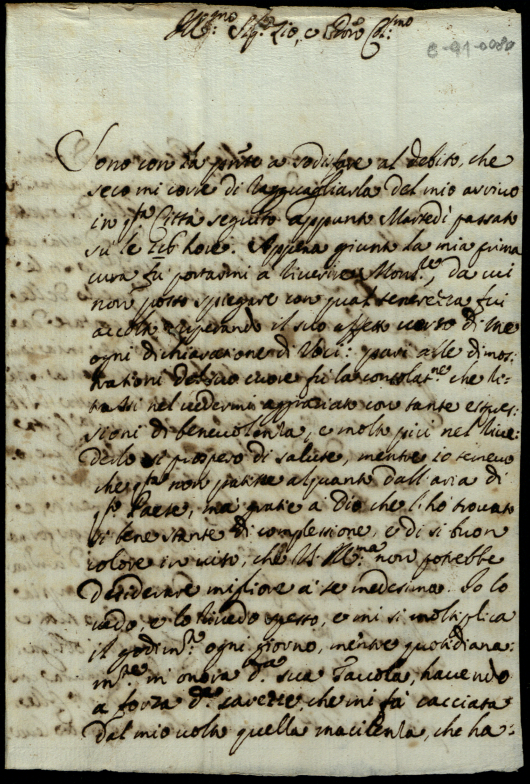 Ill.mo Sig.r Zio, e Pron Col.mo
Sono con la pñte a sodisfare al debito, che
seco mi corre di ragguagliarla del mio arrivo
in q.ta Città seguito appunto Martedì passato
su le hore. Appena giunto la mia prima
cura fù portarmi à riverire Mons.re, da cui
non posso spiegare con qual tenerezza fui
accolto superando il suo affetto verso di me
ogni dichiaratione di voci: pari alle dimos:
trationi del suo cuore fù la consolat.ne che ri:
trassi nel vedermi abbracciato con tante espres:
sioni di benevolenza, e molto più nel rive:
derlo sì prospero di salute, mentre io temevo
che q.ta non patisse alquanto dall'aria di
q.to Paese, mà gratie à Dio che l'hò trovato
sì bene stante di complessione, e di sì buon
colore in viso, che V.S. Ill.ma non potrebbe
desiderare migliore à se medesima. Io lo
vedo, e lo rivedo spesso, e mi si moltiplica
il godim.to ogni giorno, mentre quotidiana:
m.te mi onora d.a sua Tavola, havendo
a forza d.e carezze, che mi fà cacciata
dal mio volto quella macilenza, che ha: